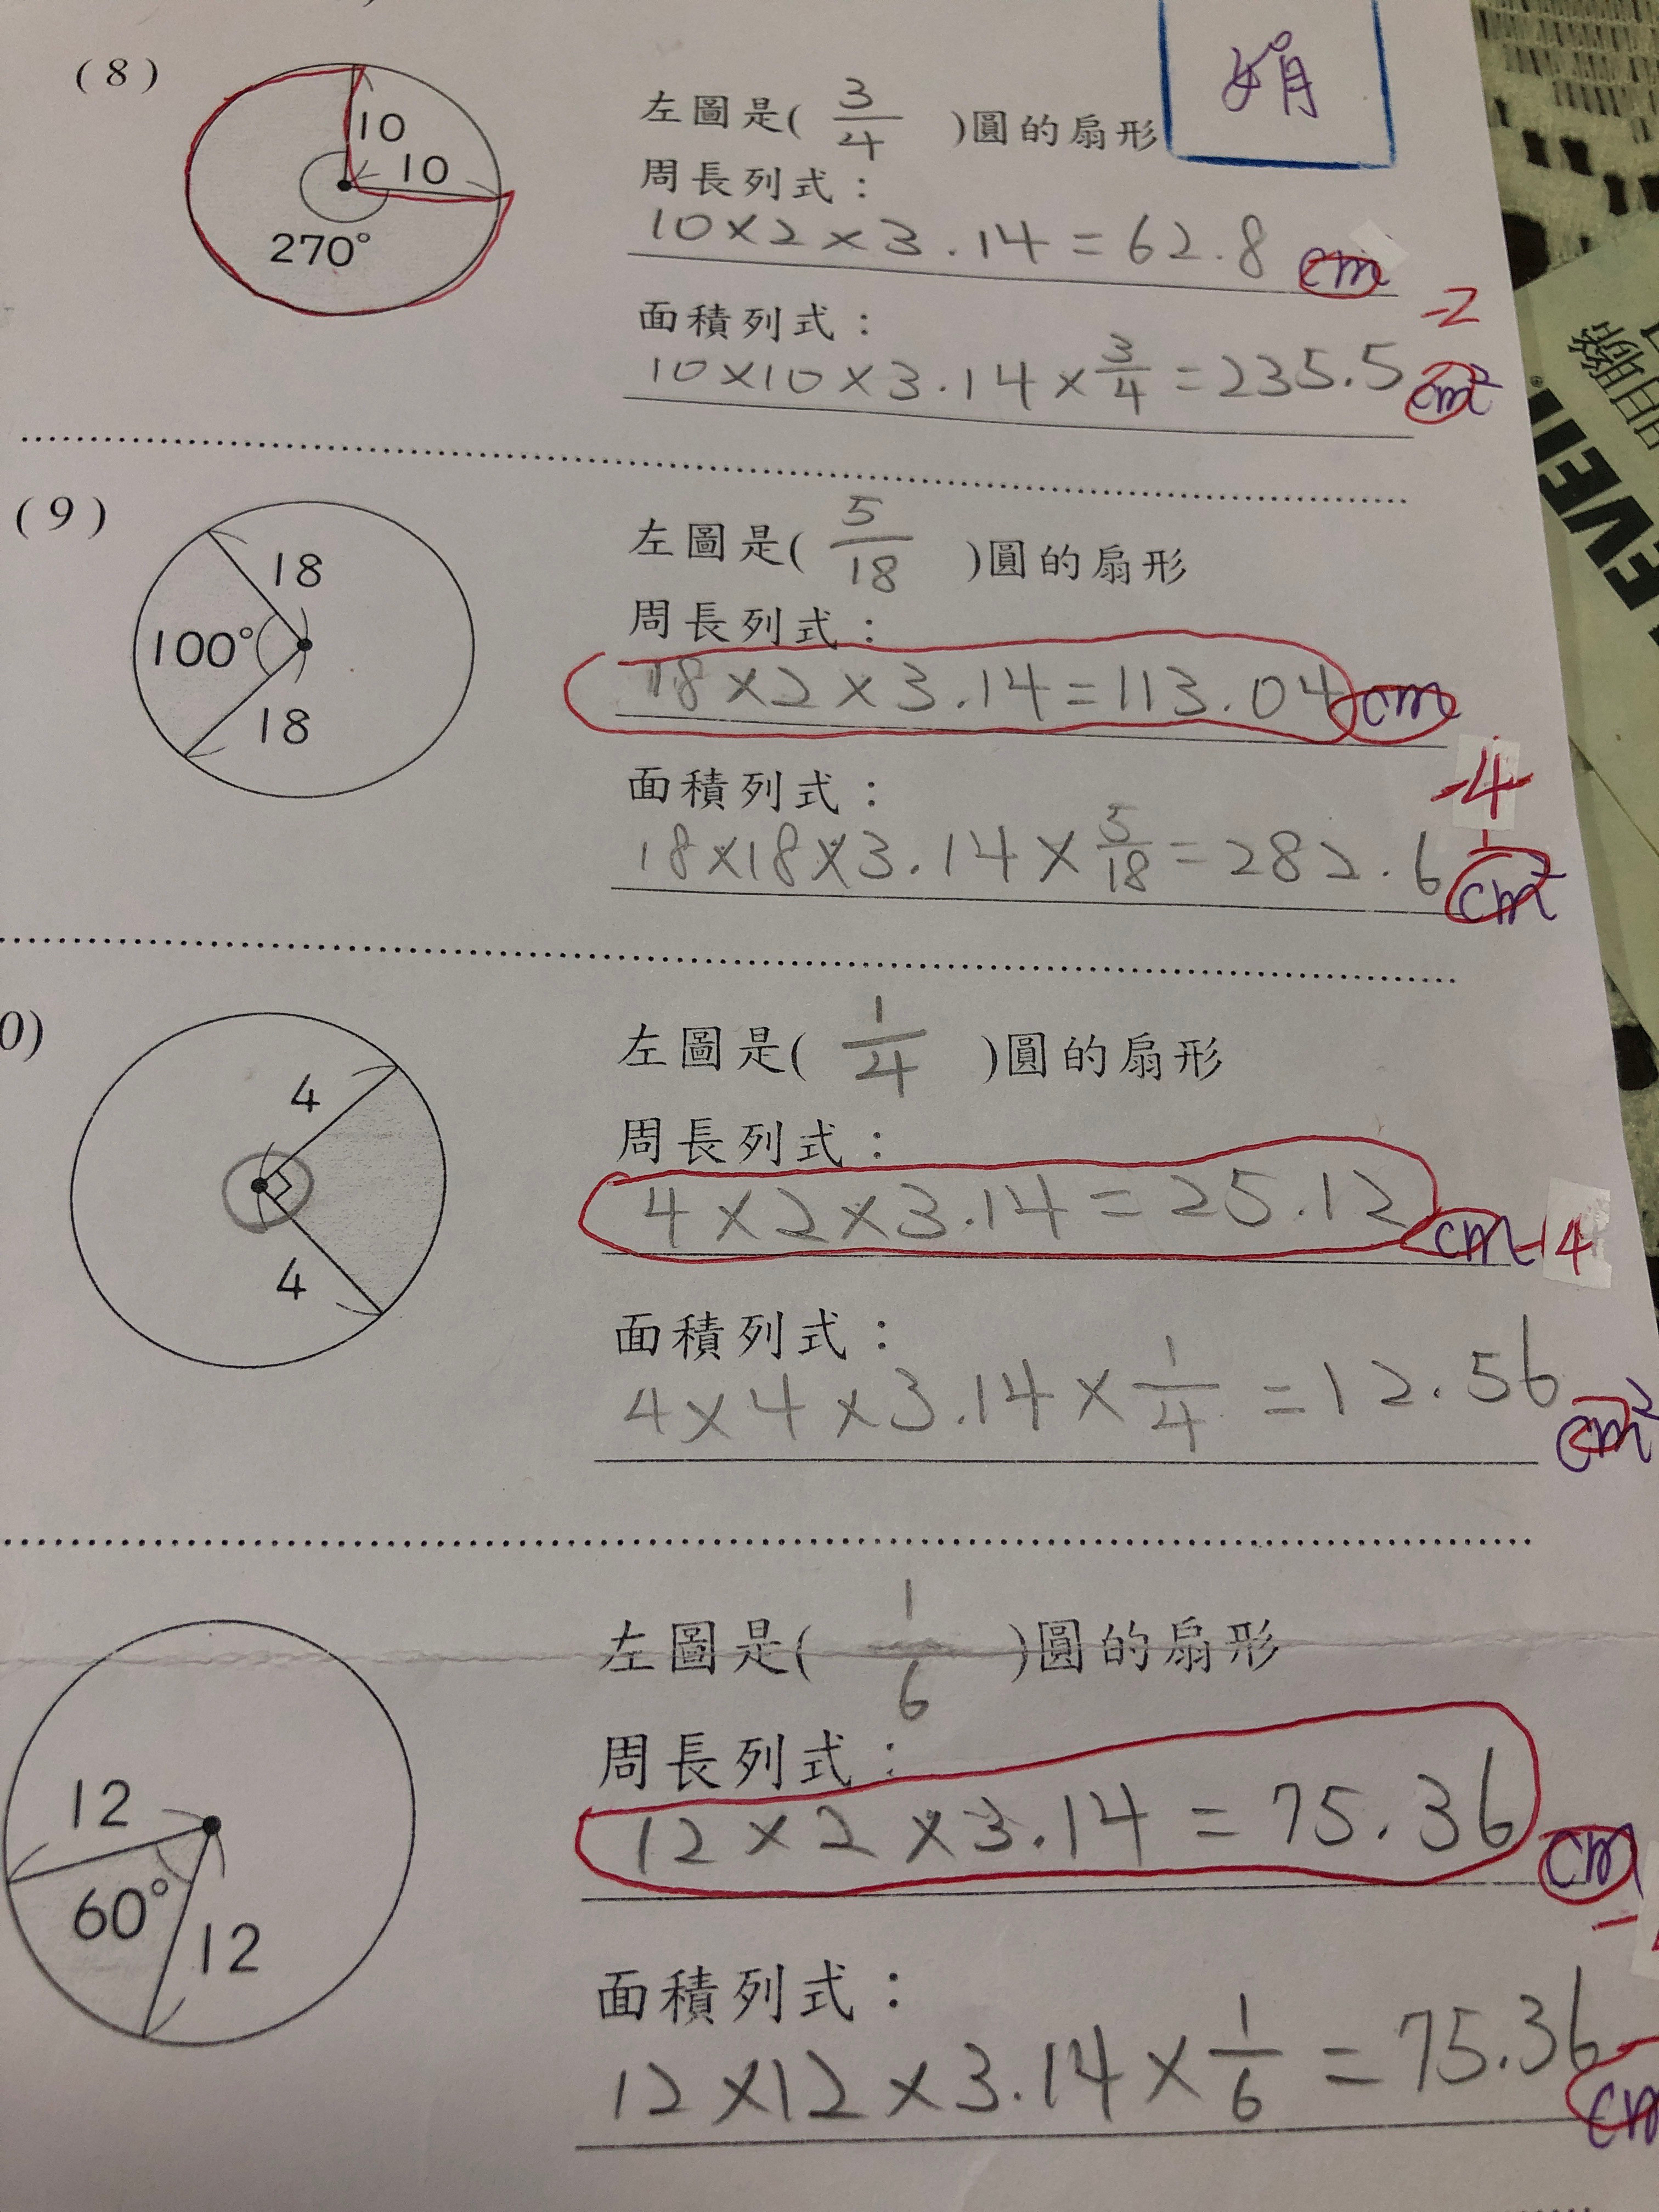 (8)
10
10
270°
娟
左圖是( 3/4 )圓的扇形
周長列式：
10×2×3.14=62.8 cm
-2
面積列式：
10×10×3.14×3/4=235.5 cm²
(9)
18
100°
18
左圖是( 5/18 )圓的扇形
周長列式：
18×2×3.14=113.04 cm
-4
面積列式：
18×18×3.14×5/18=282.6 cm²
0)
4
4
左圖是( 1/4 )圓的扇形
周長列式：
4×2×3.14=25.12 cm -4
面積列式：
4×4×3.14×1/4=12.56 cm²
12
60°
12
左圖是( 1/6 )圓的扇形
周長列式：
12×2×3.14=75.36 cm
面積列式：
12×12×3.14×1/6=75.36 cm